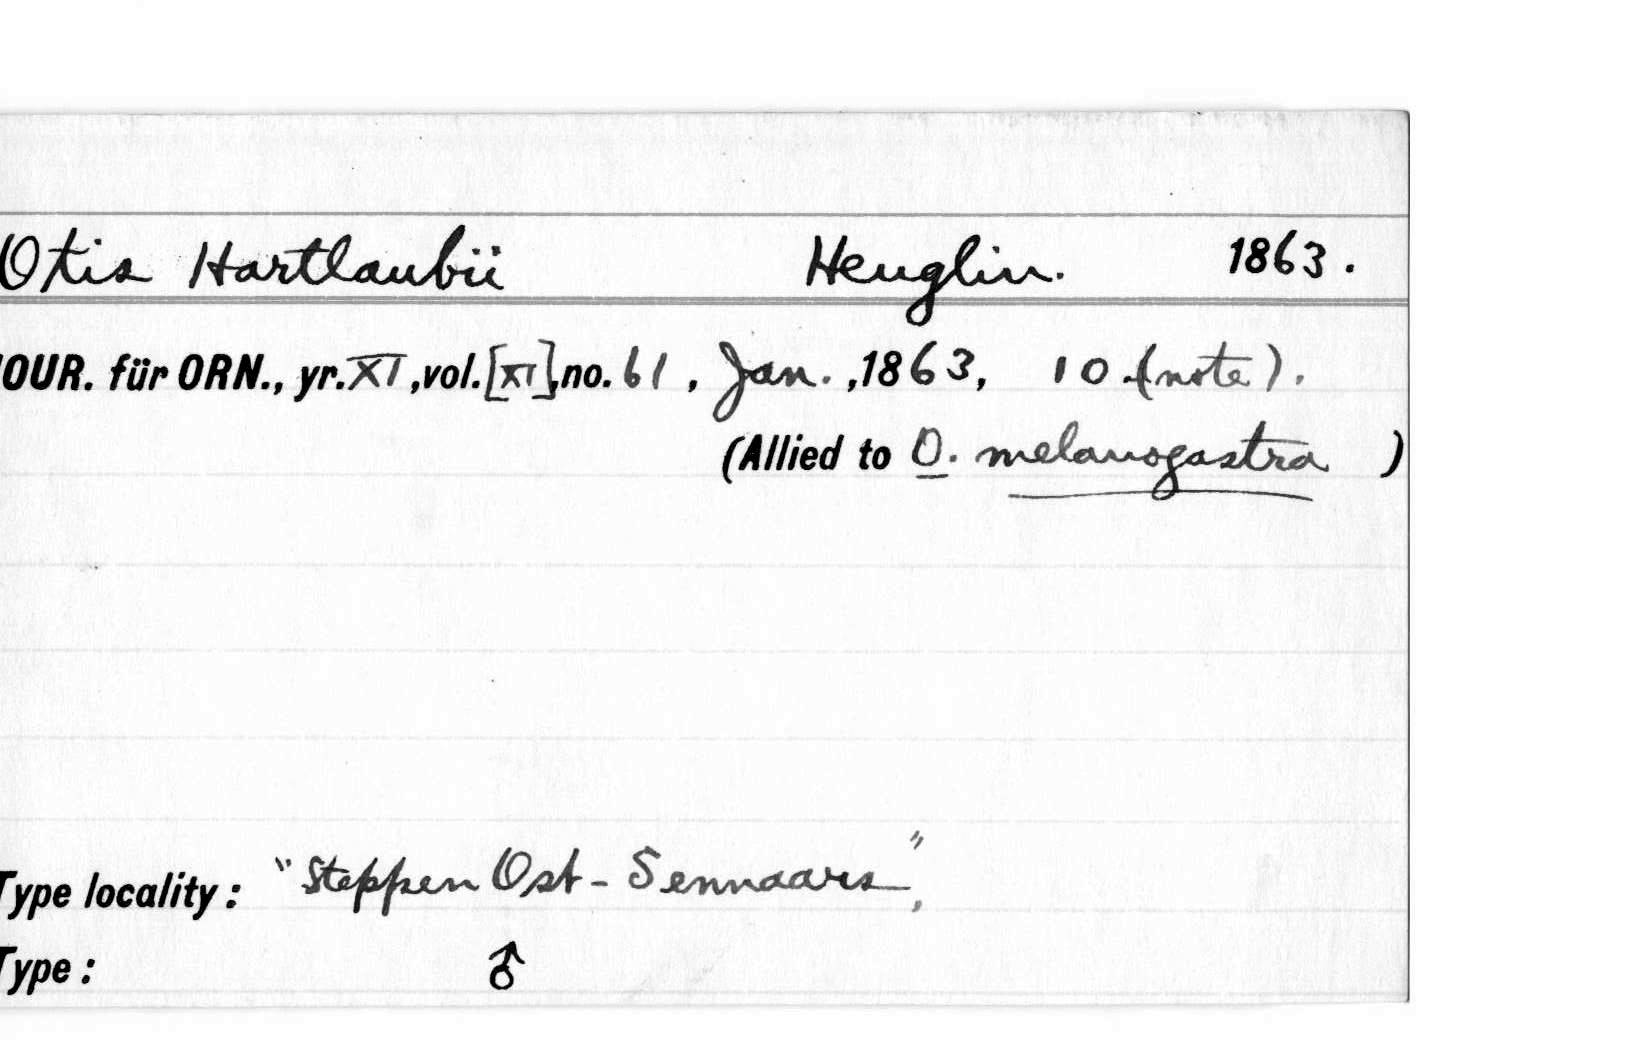 Otis Hartlaubii Heuglin. 1863.
JOUR. für ORN., yr. XI, vol. [XI], no. 61, Jan., 1863, 10 (note).
(Allied to O. melanogastra )
Type locality: "Steppen Ost-Sennaars",
Type: ♂